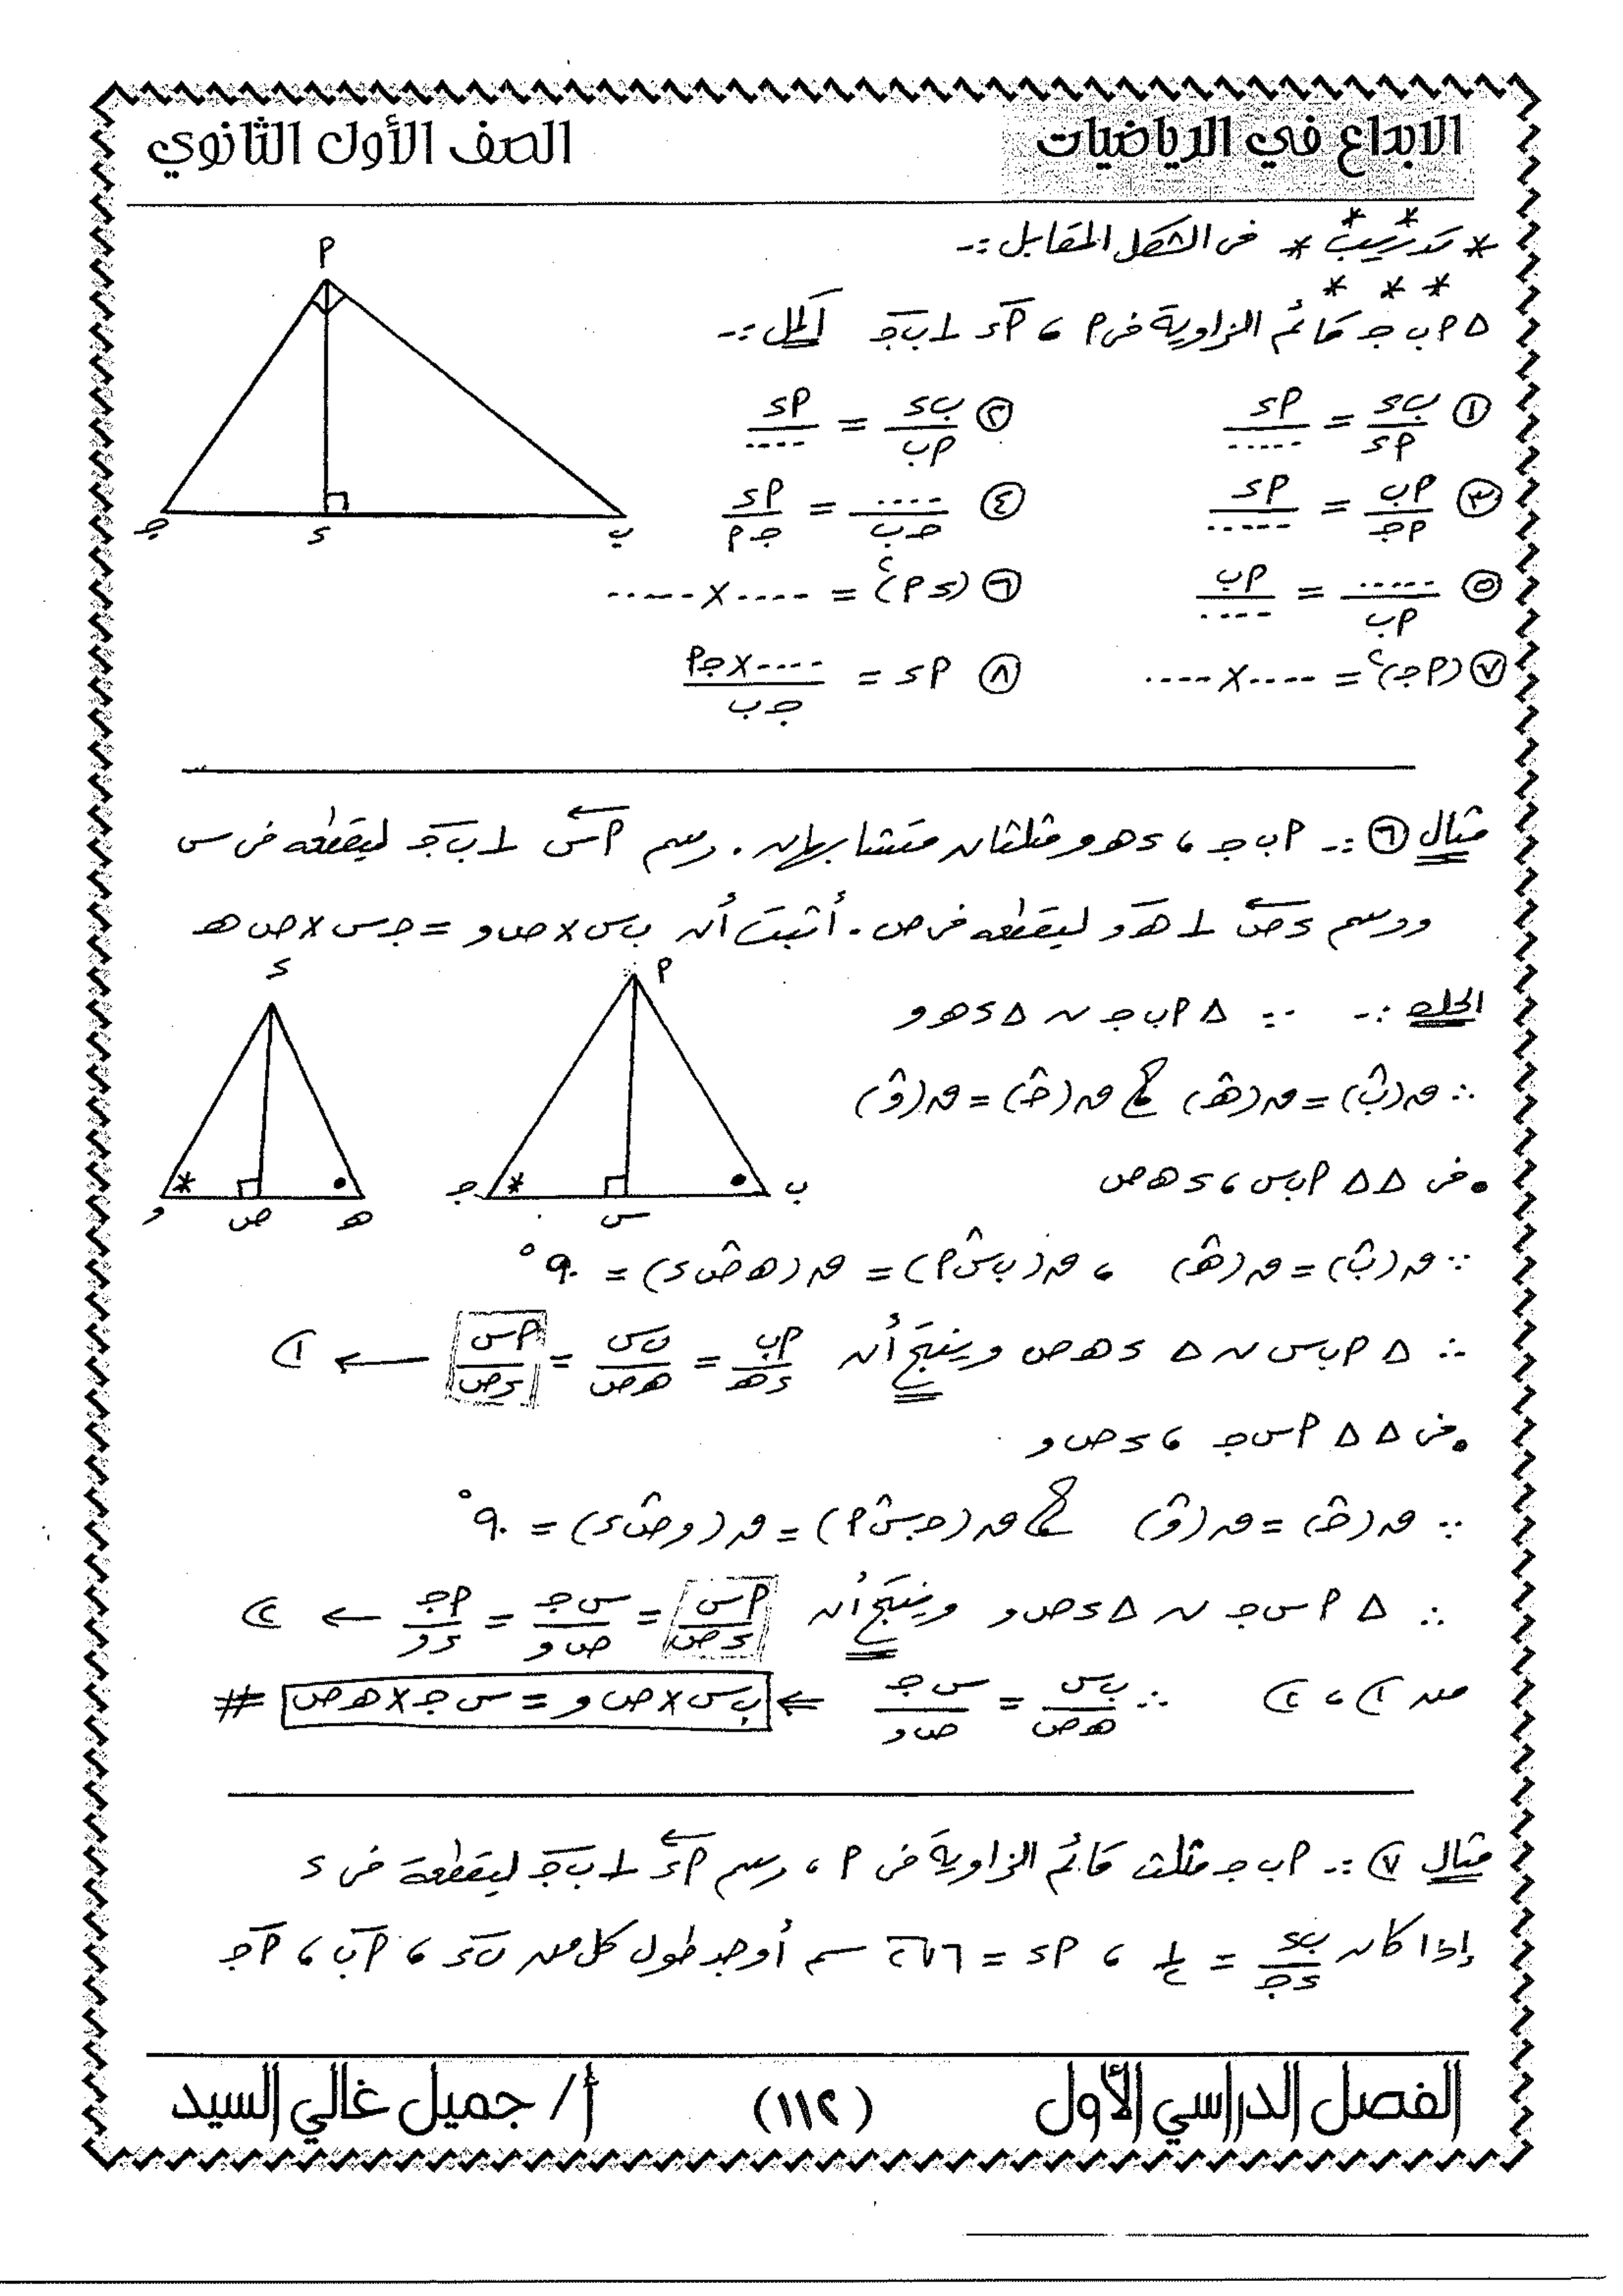 الابداع في الرياضيات الصف الأول الثانوي
* تدريب * فى الشكل المقابل :-
△ أ ب جـ قائم الزاوية فى أ ، أء ⊥ ب جـ أكمل :-
① ب ء / أ ء = أ ء / ..... ② ب ء / أ ب = أ ء / ....
③ أ ب / أ جـ = أ ء / ..... ④ .... / جـ ب = أ ء / جـ أ
⑤ ..... / أ ب = أ ب / .... ⑥ (ء أ)٢ = .... × .....
⑦ (أ جـ)٢ = .... × .... ⑧ أ ء = .... × جـ أ / جـ ب
أ
جـ ء ب
مثال ⑥ :- أ ب جـ ، ء هـ و مثلثان متشابهان . رسم أ س ⊥ ب جـ ليقطعه فى س
ورسم ء ص ⊥ هـ و ليقطعه فى ص . أثبت أن ب س × ص و = جـ س × ص هـ
الحل :- ∵ △ أ ب جـ ~ △ ء هـ و
∴ ق(ب) = ق(هـ) ، ق(جـ) = ق(و)
• فى △△ أ ب س ، ء هـ ص
ء أ
و ص هـ جـ س ب
∵ ق(ب) = ق(هـ) ، ق(ب س أ) = ق(هـ ص ء) = ٩٠°
∴ △ أ ب س ~ △ ء هـ ص وينتج أن أ ب / ء هـ = ب س / هـ ص = أ س / ء ص ← ١
• فى △△ أ س جـ ، ء ص و
∵ ق(جـ) = ق(و) ، ق(جـ س أ) = ق(و ص ء) = ٩٠°
∴ △ أ س جـ ~ △ ء ص و وينتج أن أ س / ء ص = س جـ / ص و = أ جـ / ء و ← ٢
من ١ ، ٢ ∴ ب س / هـ ص = س جـ / ص و ⇐ ب س × ص و = س جـ × هـ ص #
مثال ⑦ :- أ ب جـ مثلث قائم الزاوية فى أ ، رسم أ ء ⊥ ب جـ ليقطعة فى ء
إذا كان ب ء / ء جـ = ١/٢ ، أ ء = ٦√٢ سم أوجد طول كل من ب ء ، أ ب ، أ جـ
الفصل الدراسي الأول (١١٢) أ/ جميل غالي السيد